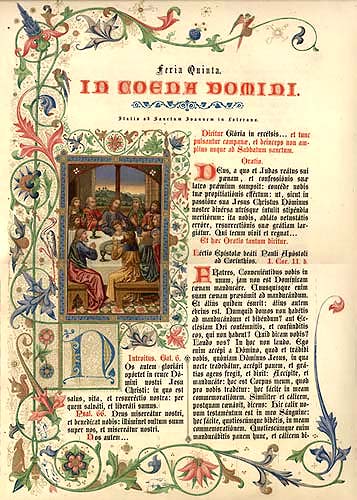 Feria Quinta.
IN COENA DOMINI.
Statio ad Sanctum Joannem in Laterano.
Dicitur Glória in excélsis... et tunc
pulsantur campanæ, et deinceps non am-
plius usque ad Sabbatum sanctum.
Oratio.
Deus, a quo et Judas reátus sui
pœnam, et confessiónis suæ
latro præmium sumpsit: concéde nobis
tuæ propitiatiónis efféctum: ut, sicut in
passióne sua Jesus Christus Dóminus
noster divérsa utrísque íntulit stipéndia
meritórum; ita nobis, abláto vetustátis
erróre, resurrectiónis suæ grátiam lar-
giátur. Qui tecum vivit et regnat...
Et hæc Oratio tantum dicitur.
Léctio Epístolæ beáti Pauli Apóstoli
ad Corínthios. I. Cor. 11. b.
Fratres, Conveniéntibus vobis in
unum, jam non est Domínicam
cœnam manducáre. Unusquísque enim
suam cœnam præsúmit ad manducándum.
Et álius quidem ésurit: álius autem
ébrius est. Numquid domos non habétis
ad manducándum et bibéndum? aut Ec-
clésiam Dei contémnitis, et confúnditis
eos, qui non habent? Quid dicam vobis?
Laudo vos? In hoc non laudo. Ego
enim accépi a Dómino, quod et trádidi
vobis, quóniam Dóminus Jesus, in qua
nocte tradebátur, accépit panem, et grá-
tias agens fregit, et dixit: Accípite, et
manducáte: hoc est Corpus meum, quod
pro vobis tradétur: hoc fácite in meam
commemoratiónem. Simíliter et cálicem,
postquam cœnávit, dicens: Hic calix no-
vum testaméntum est in meo Sánguine:
hoc fácite, quotiescúmque bibétis, in meam
commemoratiónem. Quotiescúmque enim
manducábitis panem hunc, et cálicem bi-
Introitus. Gal. 6.
Nos autem gloriári
opórtet in cruce Dó-
mini nostri Jesu
Christi: in quo est
salus, vita, et resurréctio nostra: per
quem salváti, et liberáti sumus.
Psal. 66. Deus misereátur nostri,
et benedícat nobis: illúminet vultum suum
super nos, et misereátur nostri.
Nos autem...